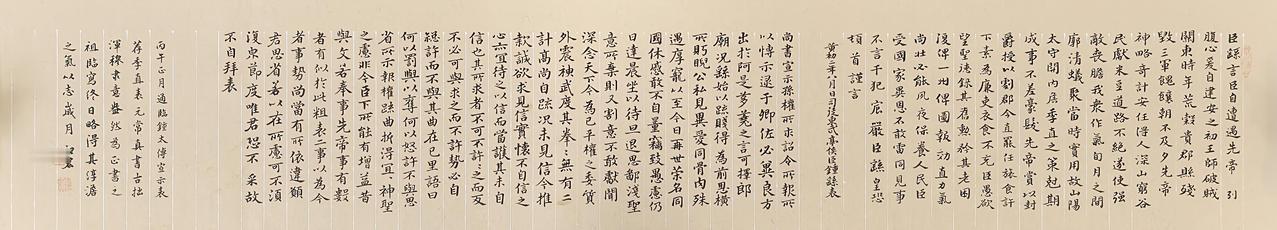 臣繇言臣自遭遇先帝忝列
腹心爰自建安之初王師破賊
關東時年荒穀貴郡縣殘
毀三軍餽饟朝不及夕先帝
神略奇計委任得人深山窮谷
民獻米豆道路不絕遂使強
敵喪膽我衆作氣旬月之間
廓清蟻聚當時實用故山陽
太守關內侯季直之策剋期
成事不差豪髮先帝賞以封
爵授以劇郡今直罷任旅食許
下素為廉吏衣食不充臣愚欲
望聖德錄其舊勳矜其老困
復俾一州俾圖報效直力氣
尚壯必能夙夜保養人民臣
受國家異恩不敢雷同見事
不言干犯宸嚴臣繇皇恐
頓首謹言
黃初二年八月日司徒東武亭侯臣鍾繇表
尚書宣示孫權所求詔令所報所
以博示逮于卿佐必冀良方
出於阿是芻蕘之言可擇郎
廟況繇始以疏賤得為前恩橫
所盼睨公私見異愛同骨肉殊
遇厚寵以至今日再世榮名同
國休慼敢不自量竊致愚慮仍
日達晨坐以待旦退思鄙淺聖
意所棄則又割意不敢獻聞
深念天下今為已平權之委質
外震神武度其拳拳無有二
計高尚自疏況未見信今推
款誠欲求見信實懷不自信之
心亦宜待之以信而當護其未自
信也其所求者不可不許許之而反
不必可與求之而不許勢必自
絕許而不與其曲在己里語曰
何以罰與以奪何以怒許不與思
省所示報權疏曲折得宜宜神聖
之慮非今臣下所能有增益昔
與文若奉事先帝事有數
者有似於此粗表二事以為今
者事勢尚當有所依違願
君思省若以在所慮可不須
復皃節度唯君恐不采故
不自拜表
丙午正月適臨鍾太傅宣示表
荐季直表元常真書古拙
渾穆隶意盎然為正書之
祖臨寫終日略得其淳澹
之氣以志歲月